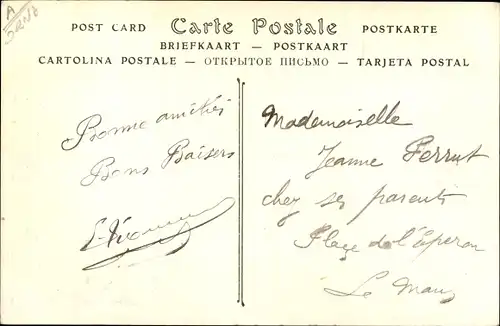 A
POST CARD Carte Postale POSTKARTE
BRIEFKAART — POSTKAART
CARTOLINA POSTALE — ОТКРЫТОЕ ПИСЬМО — TARJETA POSTAL
Bonne amitiés
Bons Baisers
Mademoiselle
Jeanne Perrut
chez ses parents
Place de l'Éperon
Le Mans